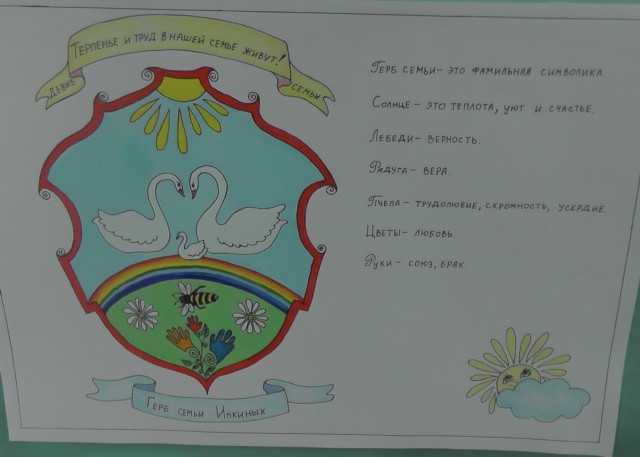 Терпенье и труд в нашей семье живут!
Девиз семьи
Герб семьи – это фамильная символика.
Солнце – это теплота, уют и счастье.
Лебеди – верность.
Радуга – вера.
Пчела – трудолюбие, скромность, усердие.
Цветы – любовь.
Руки – союз, брак.
Герб семьи Инкиных